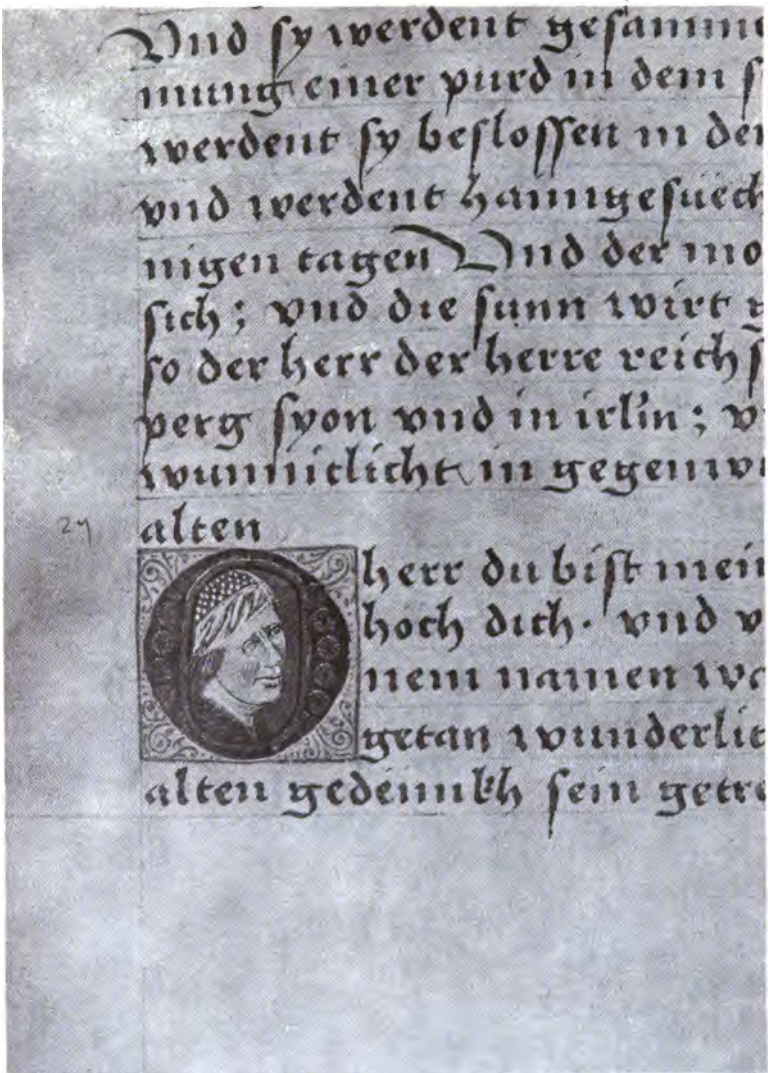 Vnd sy werdent gesamme
nung einer purd in dem s
werdent sy beslossen in der
vnd werdent haimgesuech
nigen tagen Vnd der mo
sich; vnd die sunn wirt
so der herr der herre reichs
perg syon vnd in irlm; v
wunnitlicht in gegenwu
24 alten
O herr du bist mein
hoch dich. vnd v
nem namen wa
getan wunderlic
alten gedennkh sein getre